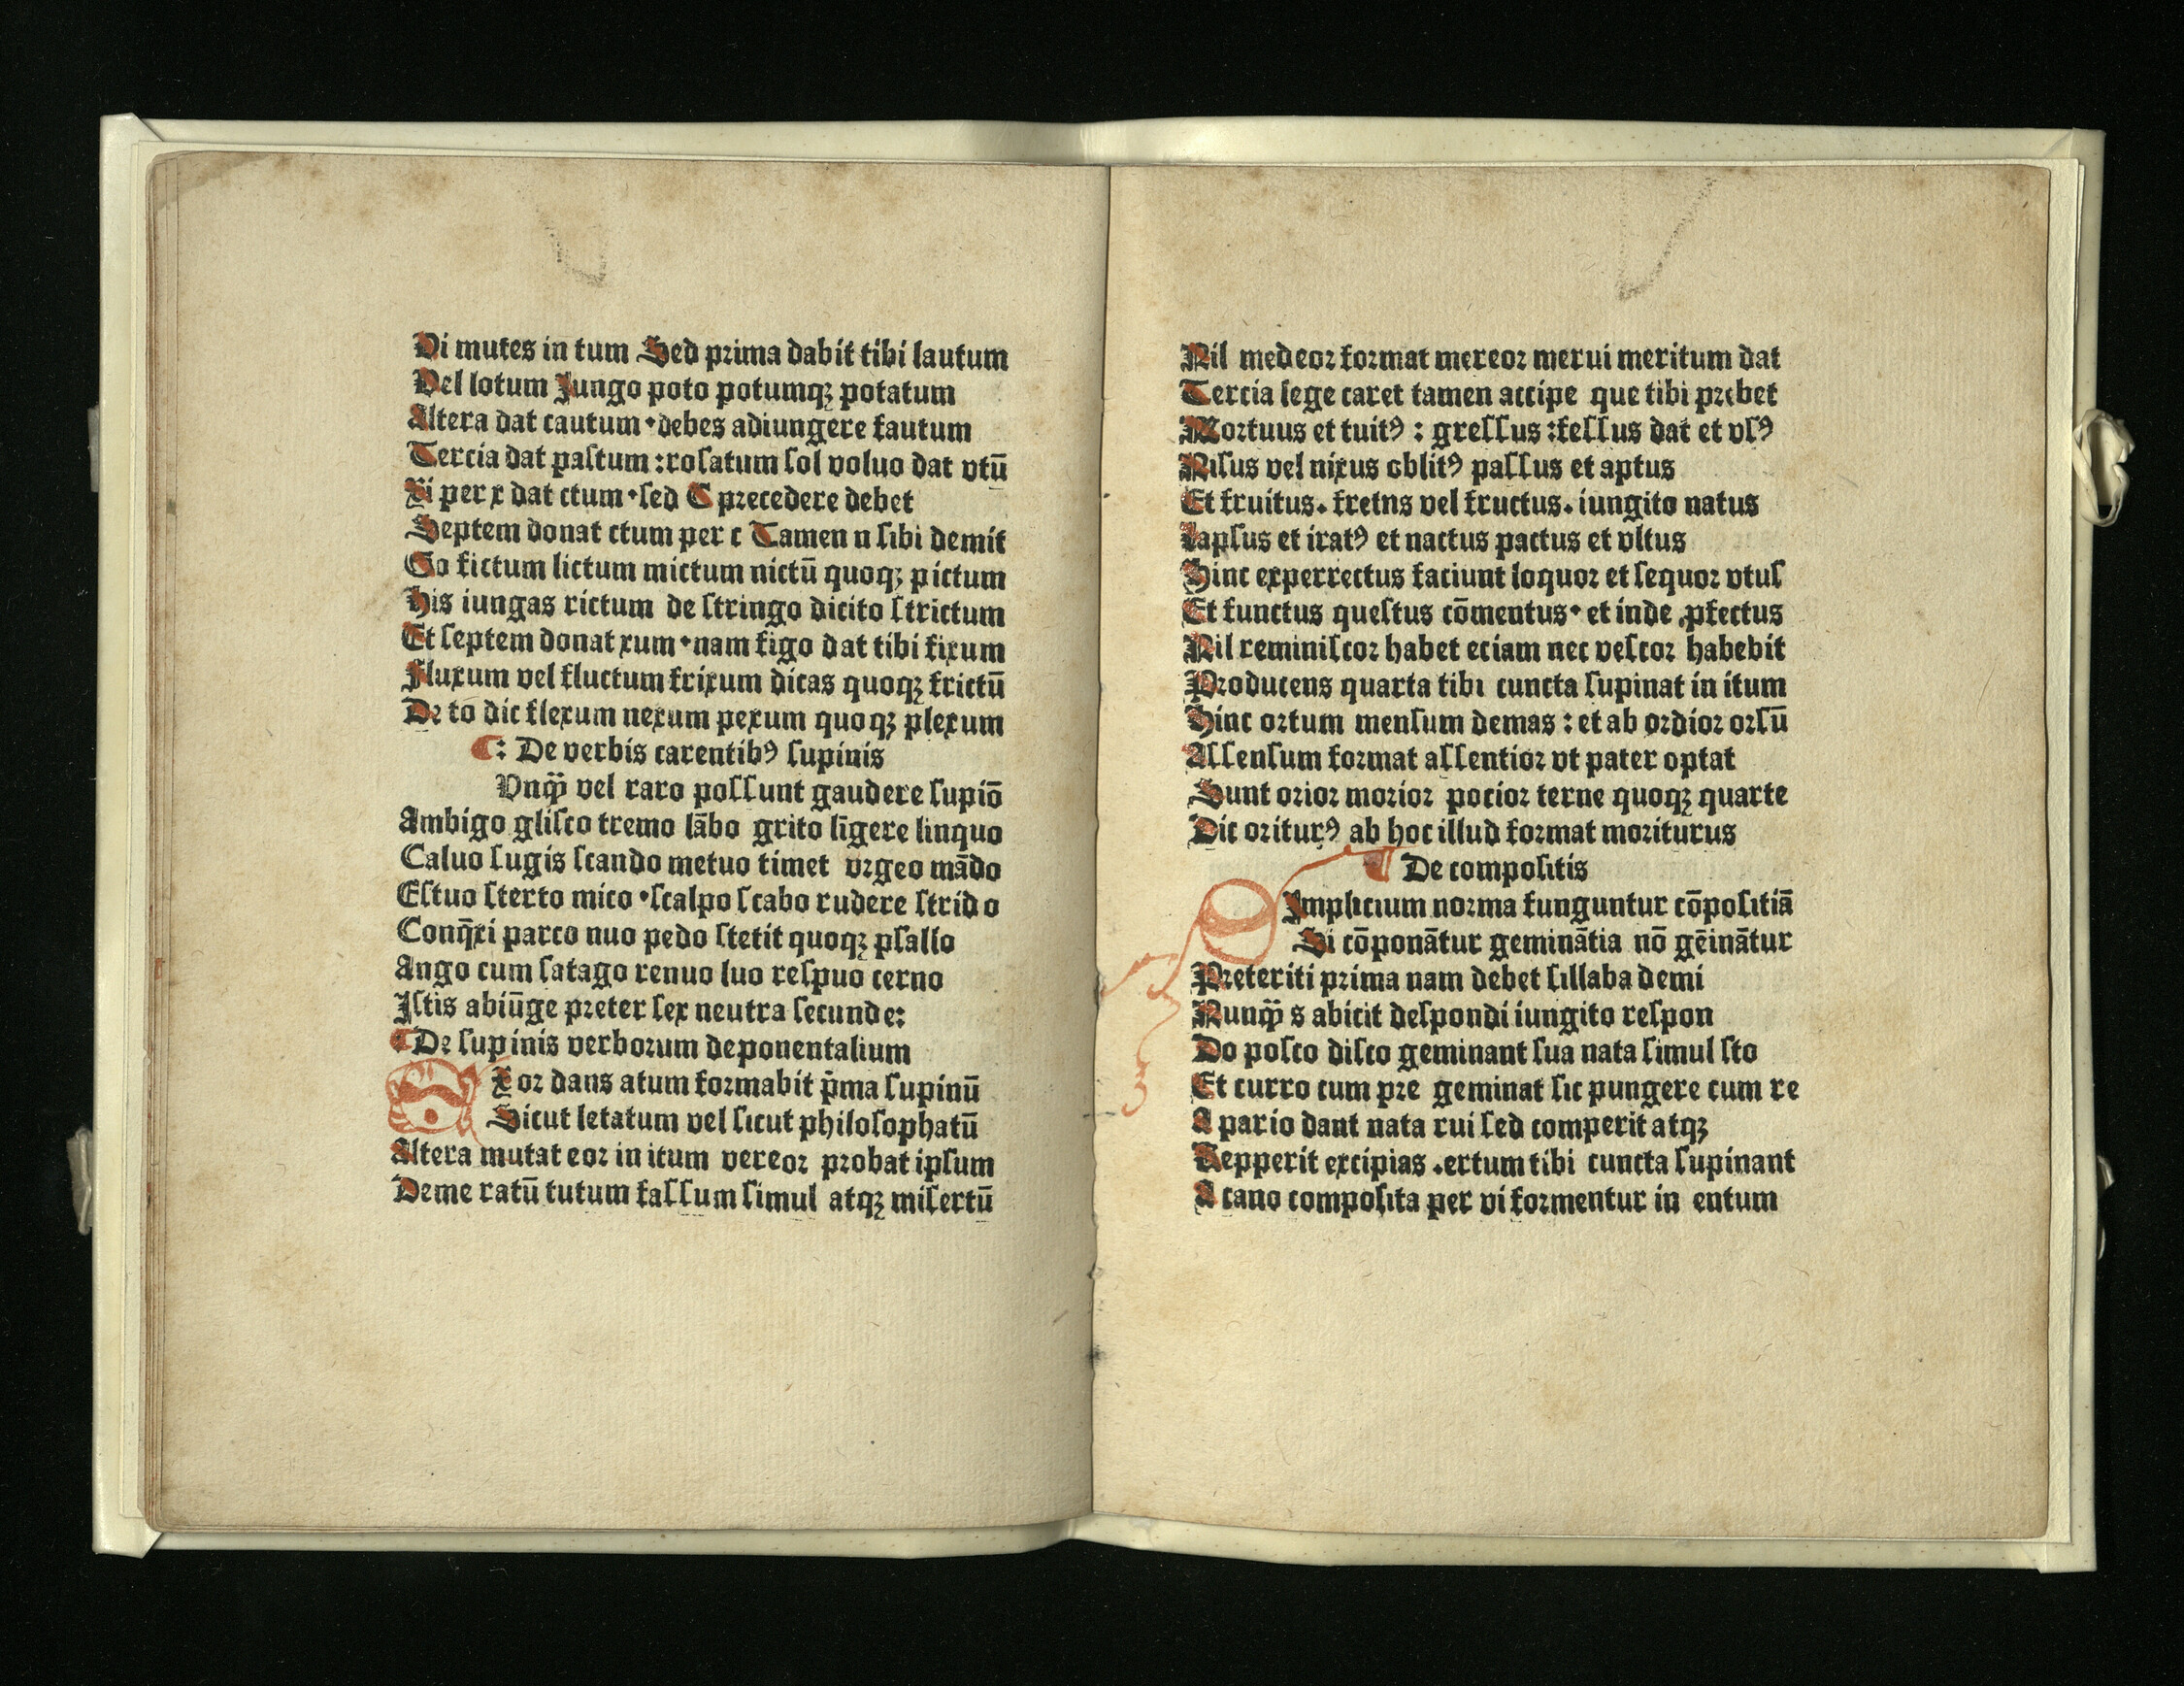 Vi mutes in tum Sed prima dabit tibi lautum
Vel lotum Jungo poto potumqꝫ potatum
Altera dat cautum · debes adiungere fautum
Tercia dat paſtum : roſatum ſol voluo dat vtū
Xi per x dat ctum · ſed C precedere debet
Septem donat ctum per c Tamen n ſibi demit
Go fictum lictum mictum nictū quoqꝫ pictum
His iungas rictum de ſtringo dicito ſtrictum
Et ſeptem donat xum · nam figo dat tibi fixum
Fluxum vel fluctum frixum dicas quoqꝫ frictū
De to dic flexum nexum pexum quoqꝫ plexum
¶: De verbis carentibꝰ ſupinis
Vnꝙ̄ vel raro poſſunt gaudere ſupiō
Ambigo gliſco tremo lābo grito līgere linquo
Caluo ſugis ſcando metuo timet vrgeo mādo
Eſtuo ſterto mico · ſcalpo ſcabo rudere ſtrido
Conq̄xi parco nuo pedo ſtetit quoqꝫ pſallo
Ango cum ſatago renuo luo reſpuo cerno
Iſtis abiūge preter ſex neutra ſecunde:
¶ De ſupinis verborum deponentalium
Xor dans atum formabit p̄ma ſupinū
Sicut letatum vel ſicut philoſophatū
Altera mutat eor in itum vereor probat ipſum
Deme ratū tutum faſſum ſimul atqꝫ miſertū
Nil medeor format mereor merui meritum dat
Tercia lege caret tamen accipe que tibi prebet
Mortuus et tuitꝰ : greſſus : feſſus dat et vſꝰ
Niſus vel nixus oblitꝰ paſſus et aptus
Et fruitus. fretns vel fructus. iungito natus
Lapſus et iratꝰ et nactus pactus et vltus
Hinc experrectus faciunt loquor et ſequor vtuſ
Et functus queſtus cōmentus · et inde ꝓfectus
Nil reminiſcor habet eciam nec veſcor habebit
Producens quarta tibi cuncta ſupinat in itum
Hinc ortum menſum demas : et ab ordior orſū
Aſſenſum format aſſentior vt pater optat
Sunt orior morior pocior terne quoqꝫ quarte
Dic oriturꝰ ab hoc illud format moriturus
¶ De compoſitis
Implicium norma funguntur cōpoſitiā
Si cōponātur geminātia nō gēinātur
Preteriti prima nam debet ſillaba demi
Nunꝙ̄ s abicit deſpondi iungito reſpon
Do poſco diſco geminant ſua nata ſimul ſto
Et curro cum pre geminat ſic pungere cum re
A pario dant nata rui ſed comperit atqꝫ
Repperit excipias .ertum tibi cuncta ſupinant
A cano compoſita per vi formentur in entum